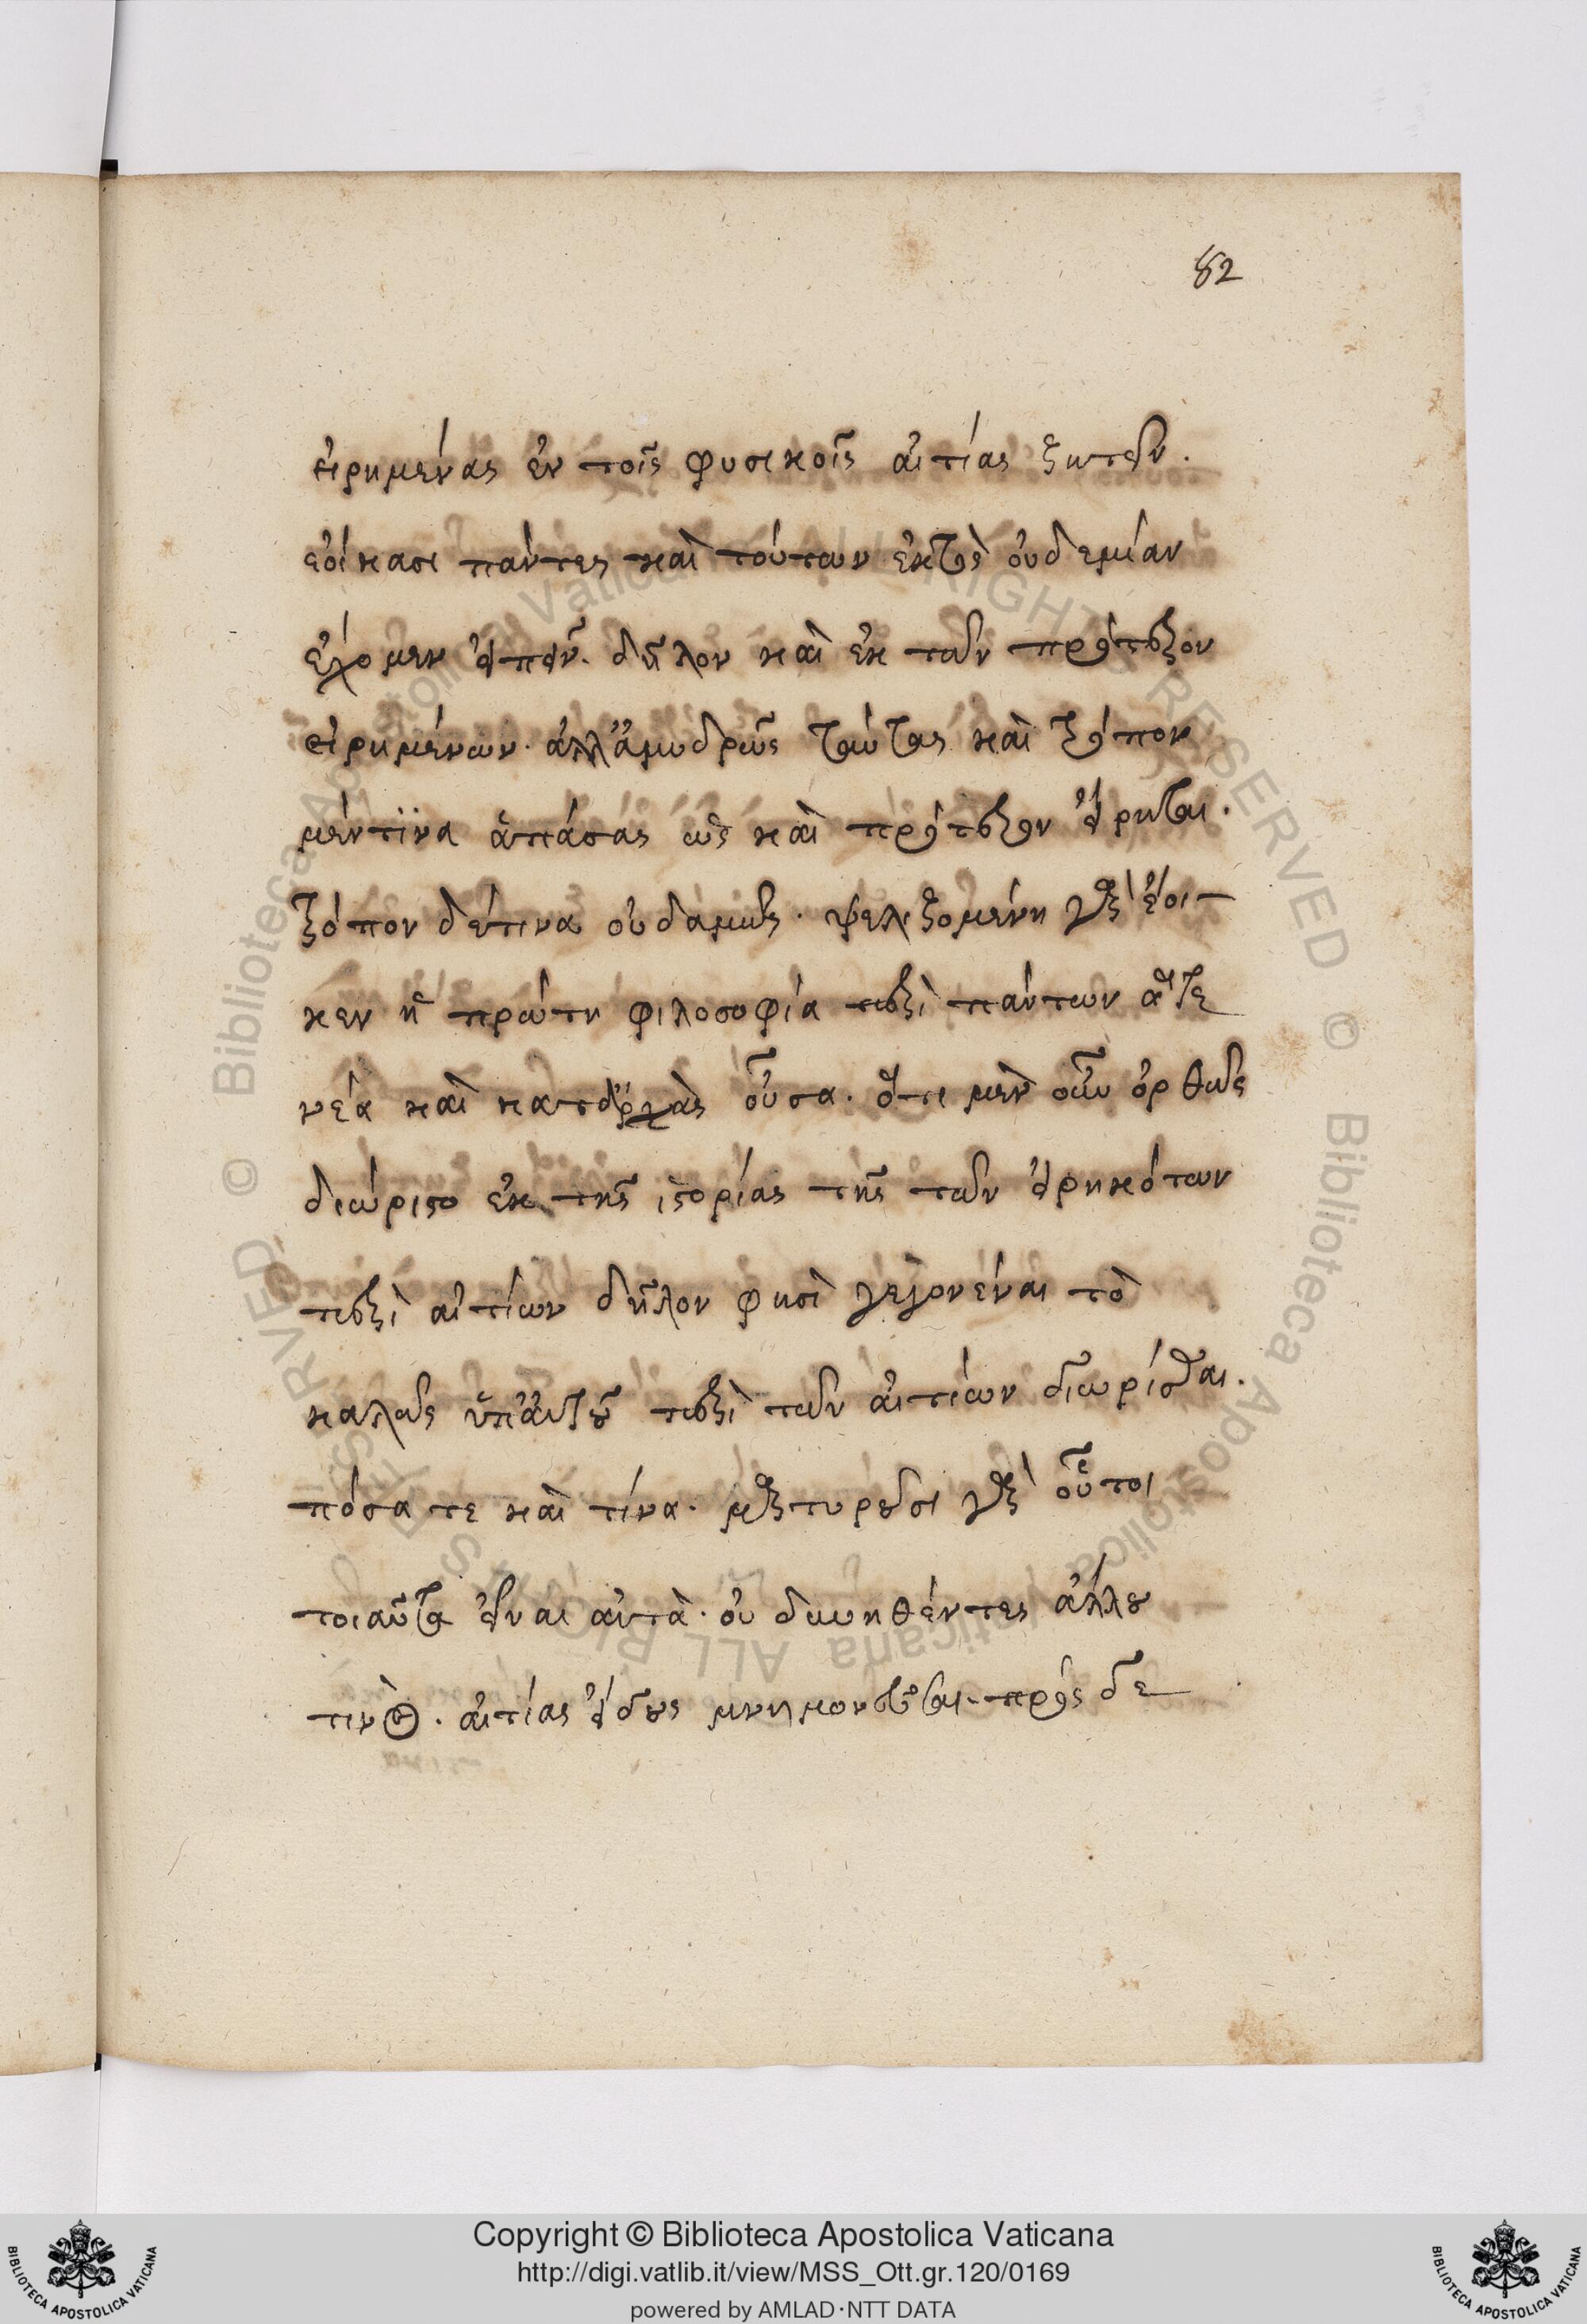 82
εἰρημένας ἐν τοῖς φυσικοῖς αἰτίας ζητεῖν.
ἐοίκασι πάντες καὶ τούτων ἐκτὸς οὐδεμίαν
ἔχομεν εἰπεῖν. δῆλον καὶ ἐκ τῶν πρότερον
εἰρημένων. ἀλλ' ἀμυδρῶς ταύτας καὶ τρόπον
μέντινα ἁπάσας ὡς καὶ πρότερον εἴρηται.
τρόπον δέ τινα οὐδαμῶς. ψελλιζομένη γὰρ ἔοι-
κεν ἡ πρώτη φιλοσοφία περὶ πάντων ἅτε
νέα καὶ κατ' ἀρχὰς οὖσα. ὅτι μὲν οὖν ὀρθῶς
διώριστο ἐκ τῆς ἱστορίας τῆς τῶν εἰρηκότων
περὶ αἰτίων δῆλον φησὶ γεγονέναι τὸ
καλῶς ὑπ' αὐτοῦ περὶ τῶν αἰτίων διωρίσθαι.
πόσα τε καὶ τίνα. μαρτυροῦσι γὰρ οὗτοι
τοιαῦτα εἶναι αὐτὰ. οὐ δυνηθέντες ἄλλου
τινὸς. αἰτίας εἴδους μνημονεῦσαι. πρὸς δε
Copyright © Biblioteca Apostolica Vaticana
http://digi.vatlib.it/view/MSS_Ott.gr.120/0169
powered by AMLAD·NTT DATA
BIBLIOTECA APOSTOLICA VATICANA
BIBLIOTECA APOSTOLICA VATICANA